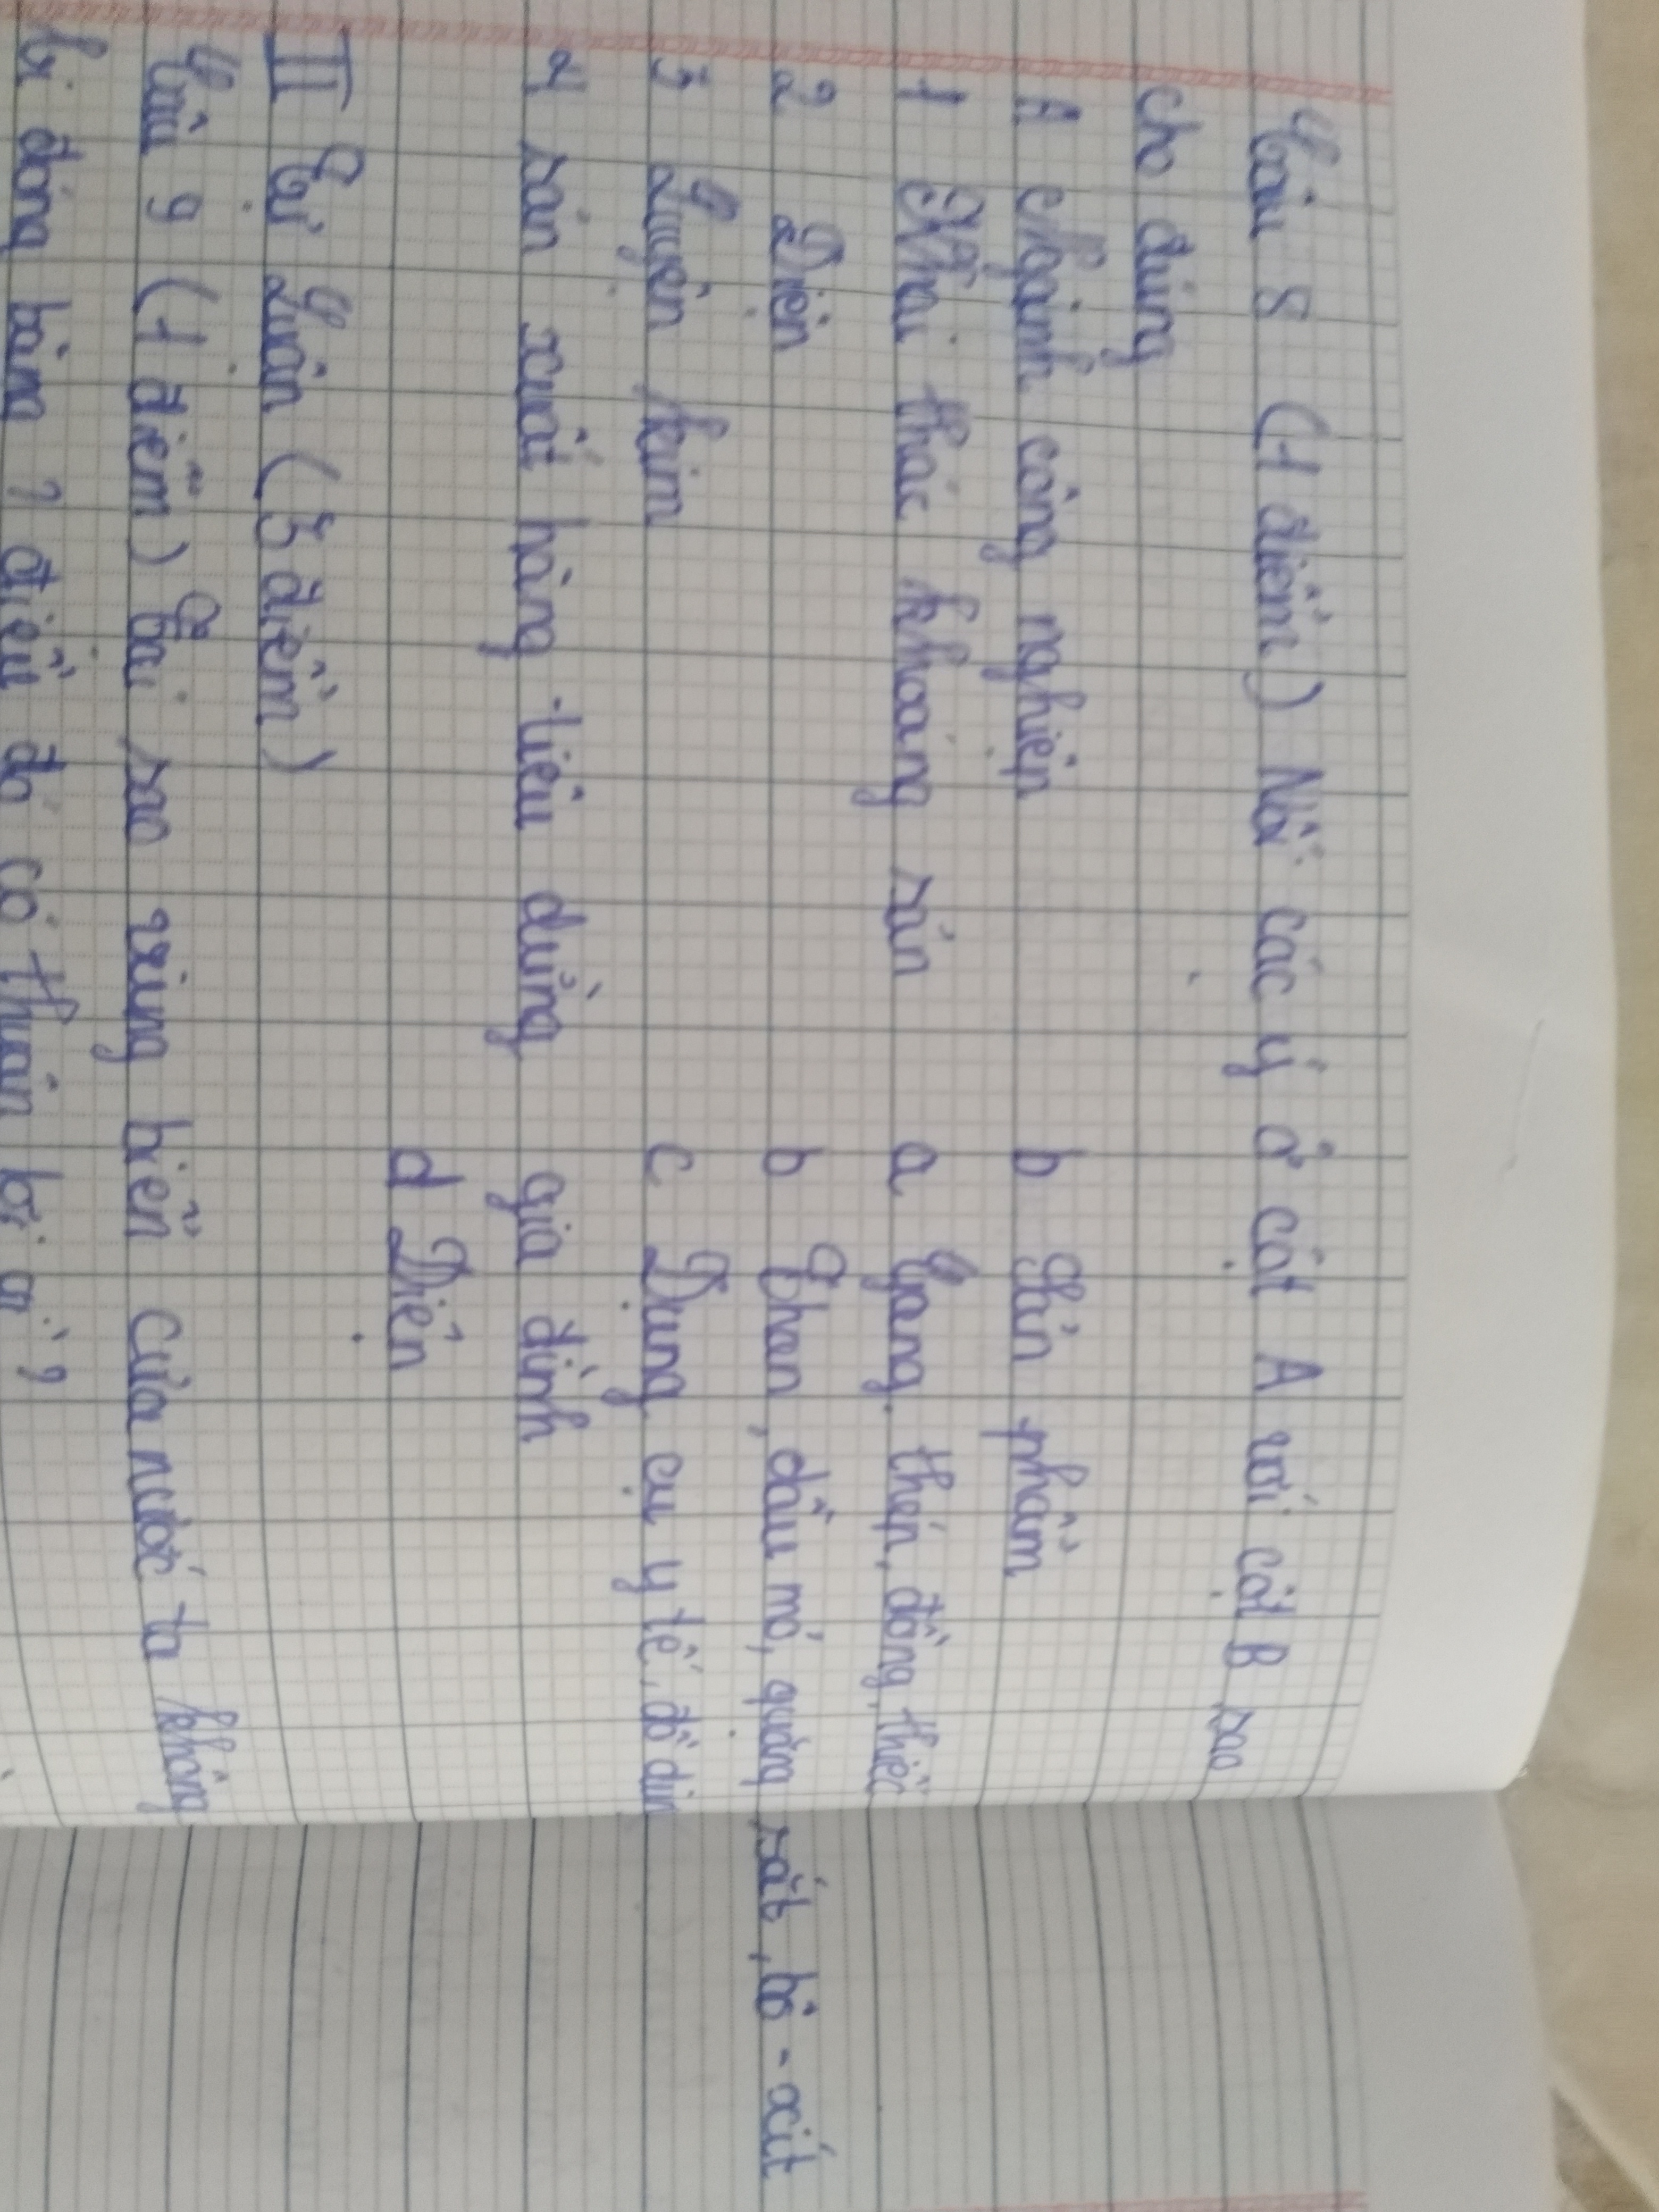 Câu 8 (1 điểm) Nối các ý ở cột A với cột B sao
cho đúng
A chgành công nghiệp b Sản phẩm
1 Khai thác khoáng sản a Gang, thép, đồng, thiếc
2 Điện b Than, dầu mỏ, quặng sắt, bô-xit
3 Luyện kim c Dụng cụ y tế, đồ dùn
4 sản xuất hàng tiêu dùng gia đình
d Điện
II Tự Luận (3 điểm)
Câu 9 (1 điểm) Tại sao vùng biển của nước ta không
bị đóng băng? điều đó có thuận lợi gì?